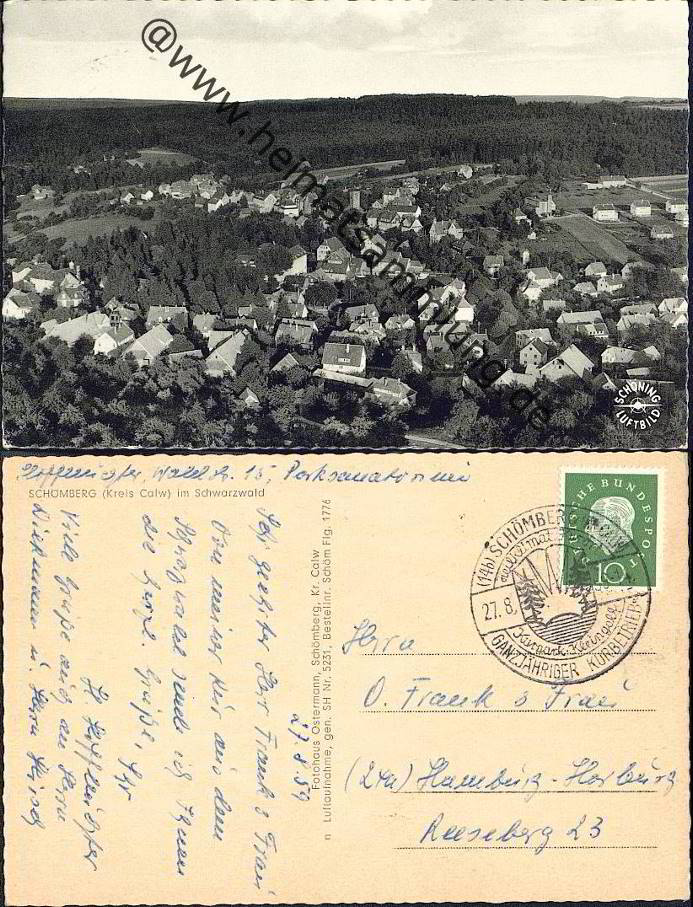 @www.heimatsammlung.de
SCHÖNING
LUFTBILD
Waldstr. 15,
SCHÖMBERG (Kreis Calw) im Schwarzwald
Sehr geehrter Herr Frank & Frau
Von meiner Kur aus dem
Schwarzwald sende ich Ihnen
die herzl. Grüße, Ihr
Viele Grüße auch an Herrn
u. Herrn
27.8.59
Fotohaus Ostermann, Schömberg, Kr. Calw
Luftaufnahme, gen. SH Nr. 5231, Bestellnr. Schöm Flg. 1776
DEUTSCHE BUNDESPOST
10
(14b) SCHÖMBERG
27.8.
GANZJÄHRIGER KURBETRIEB
Herrn
O. Frank & Frau
(24a) Hamburg-Harburg
Reeseberg 23